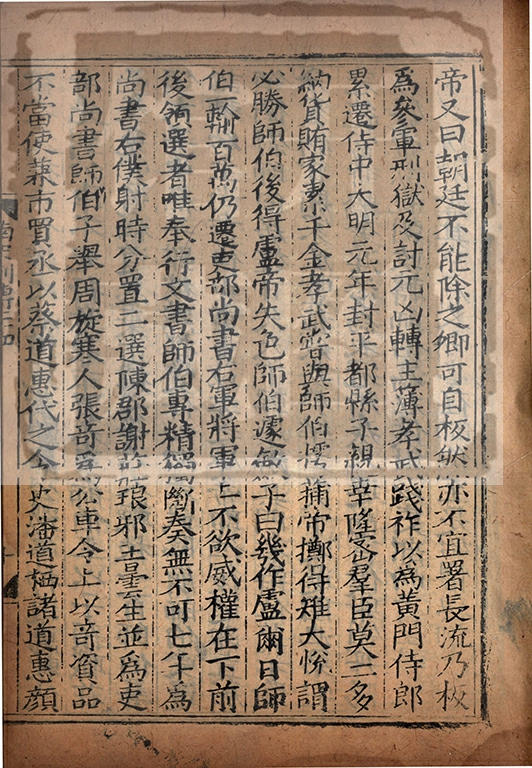 帝又曰朝廷不能除之卿可自板然亦不宜署長流乃板
為參軍刑獄及討元凶轉主薄孝武踐祚以為黃門侍郎
累遷侍中大明元年封平都縣子親幸隆密羣臣莫二多
納貨賄家累千金孝武嘗與師伯摴蒱帝擲得雉大悅謂
必勝師伯後得盧帝失色師伯遽斂子曰幾作盧爾日師
伯一輸百萬仍遷吏部尚書右軍將軍上不欲威權在下前
後領選者唯奉行文書師伯專精獨斷奏無不可七年為
尚書右僕射時分置二選陳郡謝莊琅邪王曇生並為吏
部尚書師伯子舉周旋寒人張奇為公車令上以奇資品
不當使兼市買丞以蔡道惠代之令史潘道栖諸道惠顏